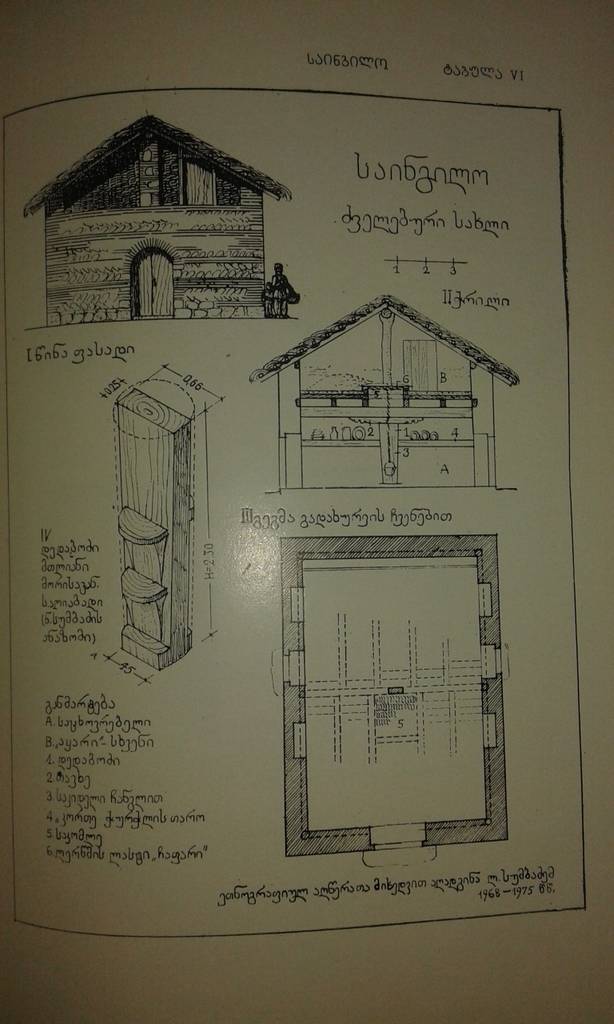 საინგილო
ტაბულა VI
საინგილო
ძველებური სახლი
1 2 3
II ჭრილი
I წინა ფასადი
0.25
0.66
H=2.30
45
6
B
2
1
4
3
A
III გეგმა გადახურვის ჩვენებით
5
IV
დედაბოძი
მთლიანი
მორისაგან.
(ლ.სუმბაძის
ანაზომი)
განმარტება
A. საცხოვრებელი
B. „აყარი“- სხვენი
1. დედაბოძი
2. თავხე
3. საკიდელი ჩანგლით
4. „კორთე“ ჭურჭლის თარო
5 საკომლე
6. ლერწმის ლასტი „ჩაფარი“
ეთნოგრაფიულ აღწერათა მიხედვით აღადგინა ლ. სუმბაძემ
1968-1975 წწ.